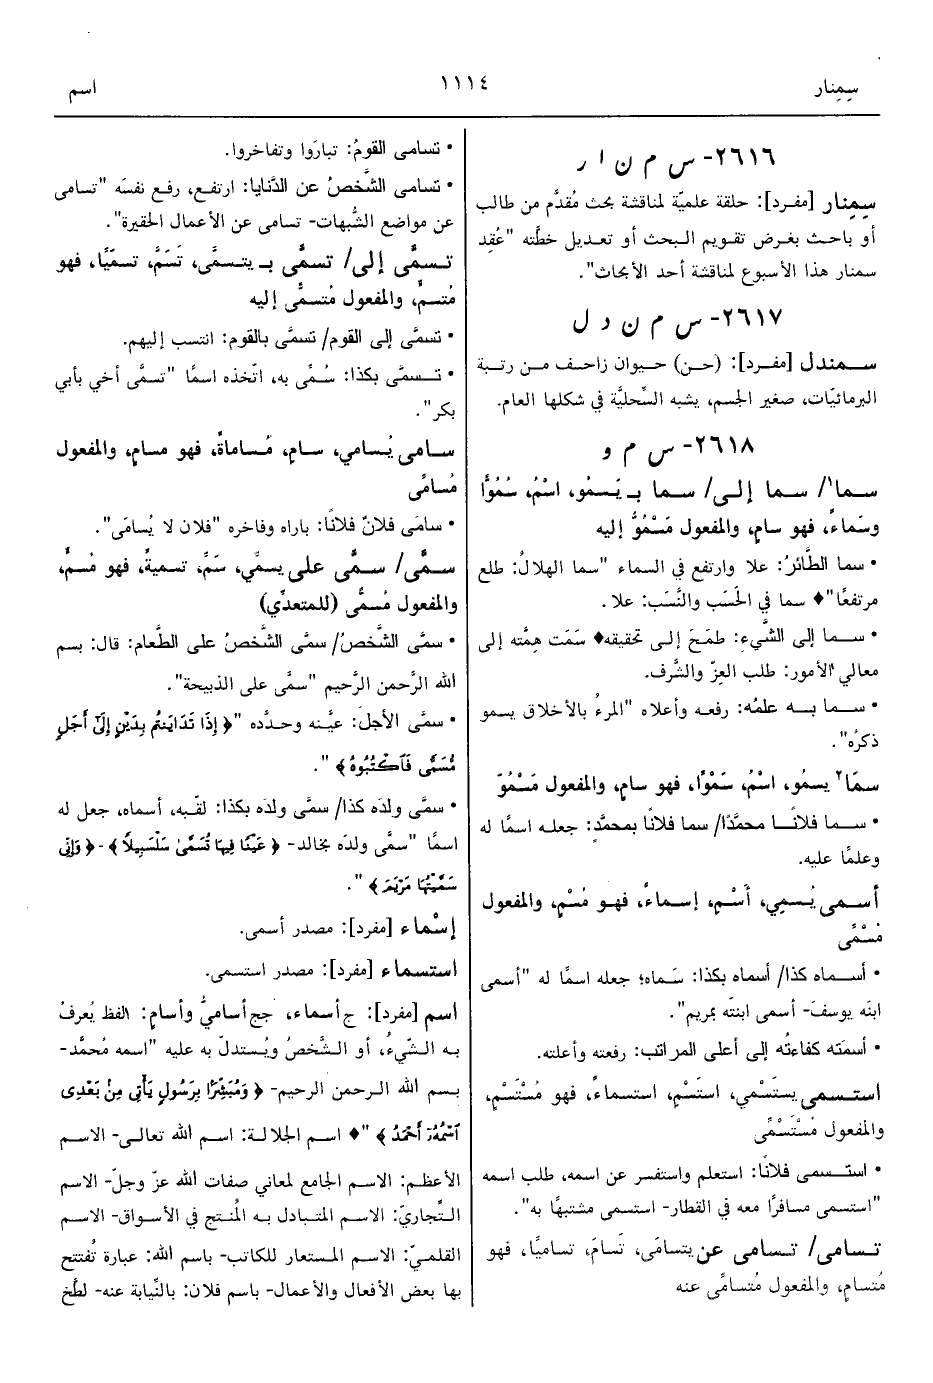 سِمِنار
١١١٤
اسم
٢٦١٦- س م ن ا ر
سِمِنار [مفرد]: حلقة علميّة لمناقشة بحث مُقدَّم من طالب
أو باحث بغرض تقويم البحث أو تعديل خطَّته "عُقِد
سمنار هذا الأسبوع لمناقشة أحد الأبحاث".
٢٦١٧- س م ن د ل
سمندل [مفرد]: (حن) حيوان زاحف من رتبة
البرمائيّات، صغير الجسم، يشبه السِّحليَّة في شكلها العام.
٢٦١٨- س م و
سما١/ سما إلى/ سما بـ يَسمُو، اسْمُ، سُمُوًّا
وسَماءً، فهو سامٍ، والمفعول مَسْمُوٌّ إليه
• سما الطَّائرُ: علا وارتفع في السماء "سما الهلالُ: طلع
مرتفعًا"♦ سما في الحَسَب والنَّسَب: علا.
• سما إلى الشَّيءِ: طمَحَ إلى تحقيقه♦ سَمَت هِمَّته إلى
معالي الأمور: طلب العِزّ والشَّرف.
• سما به علمُه: رفعه وأعلاه "المرءُ بالأخلاق يسمو
ذكرُه".
سمَا٢ يسمُو، اسْمُ، سَمْوًا، فهو سامٍ، والمفعول مَسْمُوّ
• سما فلانًا محمَّدًا/ سما فلانًا بمحمَّد: جعله اسمًا له
وعلمًا عليه.
أسمى يُسمِي، أَسْمِ، إسماءً، فهو مُسْمٍ، والمفعول
مُسْمًى
• أسماه كذا/ أسماه بكذا: سَماه؛ جعله اسمًا له "أسمى
ابنَه يوسفَ- أسمى ابنتَه بمريم".
• أسمَته كفاءتُه إلى أعلى المراتب: رفعته وأعلته.
استسمى يستَسْمي، استَسْمِ، استسماءً، فهو مُسْتَسْمٍ،
والمفعول مُسْتَسْمًى
• استسمى فلانًا: استعلم واستفسر عن اسمه، طلب اسمه
"استسمى مسافرًا معه في القطار- استسمى مشتبهًا به".
تسامى/ تسامى عن يتسامَى، تَسامَ، تساميًا، فهو
مُتسامٍ، والمفعول مُتسامًى عنه
• تسامى القومُ: تبارَوا وتفاخروا.
• تسامى الشَّخصُ عن الدَّنايا: ارتفع، رفع نفسَه "تسامى
عن مواضع الشُّبهات- تسامى عن الأعمال الحقيرة".
تسمَّى إلى/ تسمَّى بـ يتسمَّى، تَسَمَّ، تسمّيًا، فهو
مُتسمٍّ، والمفعول مُتسمًّى إليه
• تسمَّى إلى القوم/ تسمَّى بالقوم: انتسب إليهم.
• تسمَّى بكذا: سُمِّى به، اتّخذه اسمًا "تسمَّى أخي بأبي
بكر".
سامى يُسامي، سامِ، مُساماةً، فهو مسامٍ، والمفعول
مُسامًى
• سامَى فلانٌ فلانًا: باراه وفاخره "فلان لا يُسامَى".
سمَّى/ سمَّى على يسمِّي، سَمِّ، تسميةً، فهو مُسمٍّ،
والمفعول مُسمًّى (للمتعدِّي)
• سمَّى الشَّخصُ/ سمَّى الشَّخصُ على الطَّعام: قال: بسم
الله الرَّحمن الرَّحيم "سمَّى على الذبيحة".
• سمَّى الأجل: عيَّنه وحدَّده "﴿إِذَا تَدَايَنتُم بِدَيْنٍ إِلَىٰٓ أَجَلٍ
مُّسَمًّى فَٱكْتُبُوهُ﴾".
• سمَّى ولدَه كذا/ سمَّى ولدَه بكذا: لقّبه، أسماه، جعل له
اسمًا "سمَّى ولدَه بخالد- ﴿عَيْنًا فِيهَا تُسَمَّىٰ سَلْسَبِيلاً﴾-﴿وَإِنِّي
سَمَّيْتُهَا مَرْيَمَ﴾".
إسْماء [مفرد]: مصدر أسمى.
استسماء [مفرد]: مصدر استسمى.
اسم [مفرد]: ج أسماء، جج أساميُّ وأسامٍ: الفظ يُعرفُ
به الشَّيءُ، أو الشَّخصُ ويُستدلّ به عليه "اسمه مُحمَّد-
بسم الله الرحمن الرحيم- ﴿وَمُبَشِّرًا بِرَسُولٍ يَأْتِي مِنْ بَعْدِي
ٱسْمُهُۥٓ أَحْمَدُ﴾"♦ اسم الجلالة: اسم الله تعالى- الاسم
الأعظم: الاسم الجامع لمعاني صفات الله عزّ وجلّ- الاسم
التِّجاريّ: الاسم المتبادل به المُنتج في الأسواق- الاسم
القلميّ: الاسم المستعار للكاتب- باسم الله: عبارة تُفتتح
بها بعض الأفعال والأعمال- باسم فلان: بالنِّيابة عنه- لطَّخ